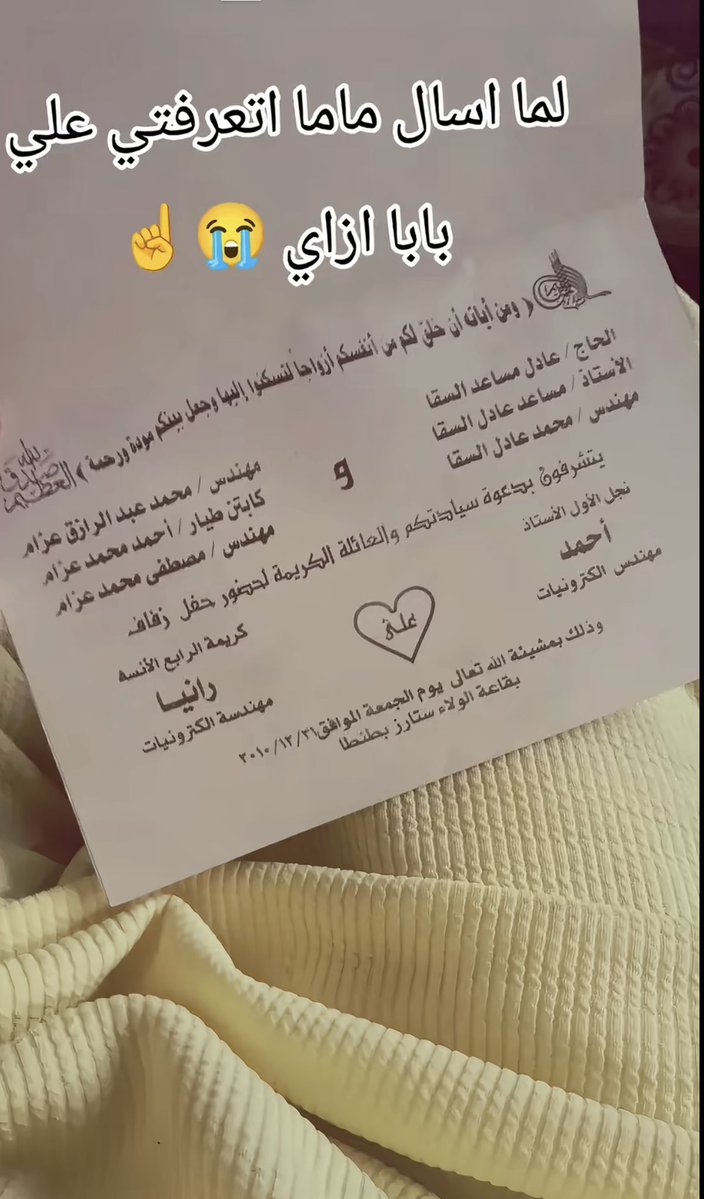 لما اسال ماما اتعرفتي علي
بابا ازاي 😭☝️
﴿ ومن أياته أن خلق لكم من أنفسكم أزواجاً لتسكنوا إليها وجعل بينكم مودة ورحمة ﴾ صدق الله العظيم
الحاج / عادل مساعد السقا
الأستاذ / مساعد عادل السقا
مهندس / محمد عادل السقا
و
مهندس / محمد عبد الرازق عزام
كابتن طيار / أحمد محمد عزام
مهندس / مصطفى محمد عزام
يتشرفون بدعوة سيادتكم والعائلة الكريمة لحضور حفل زفاف
نجل الأول الأستاذ
أحمد
مهندس الكترونيات
على
كريمة الرابع الأنسه
رانيا
مهندسة الكترونيات
وذلك بمشيئة الله تعالى يوم الجمعة الموافق ٢٠١٠/١٢/٣١
بقاعة الولاء ستارز بطنطا